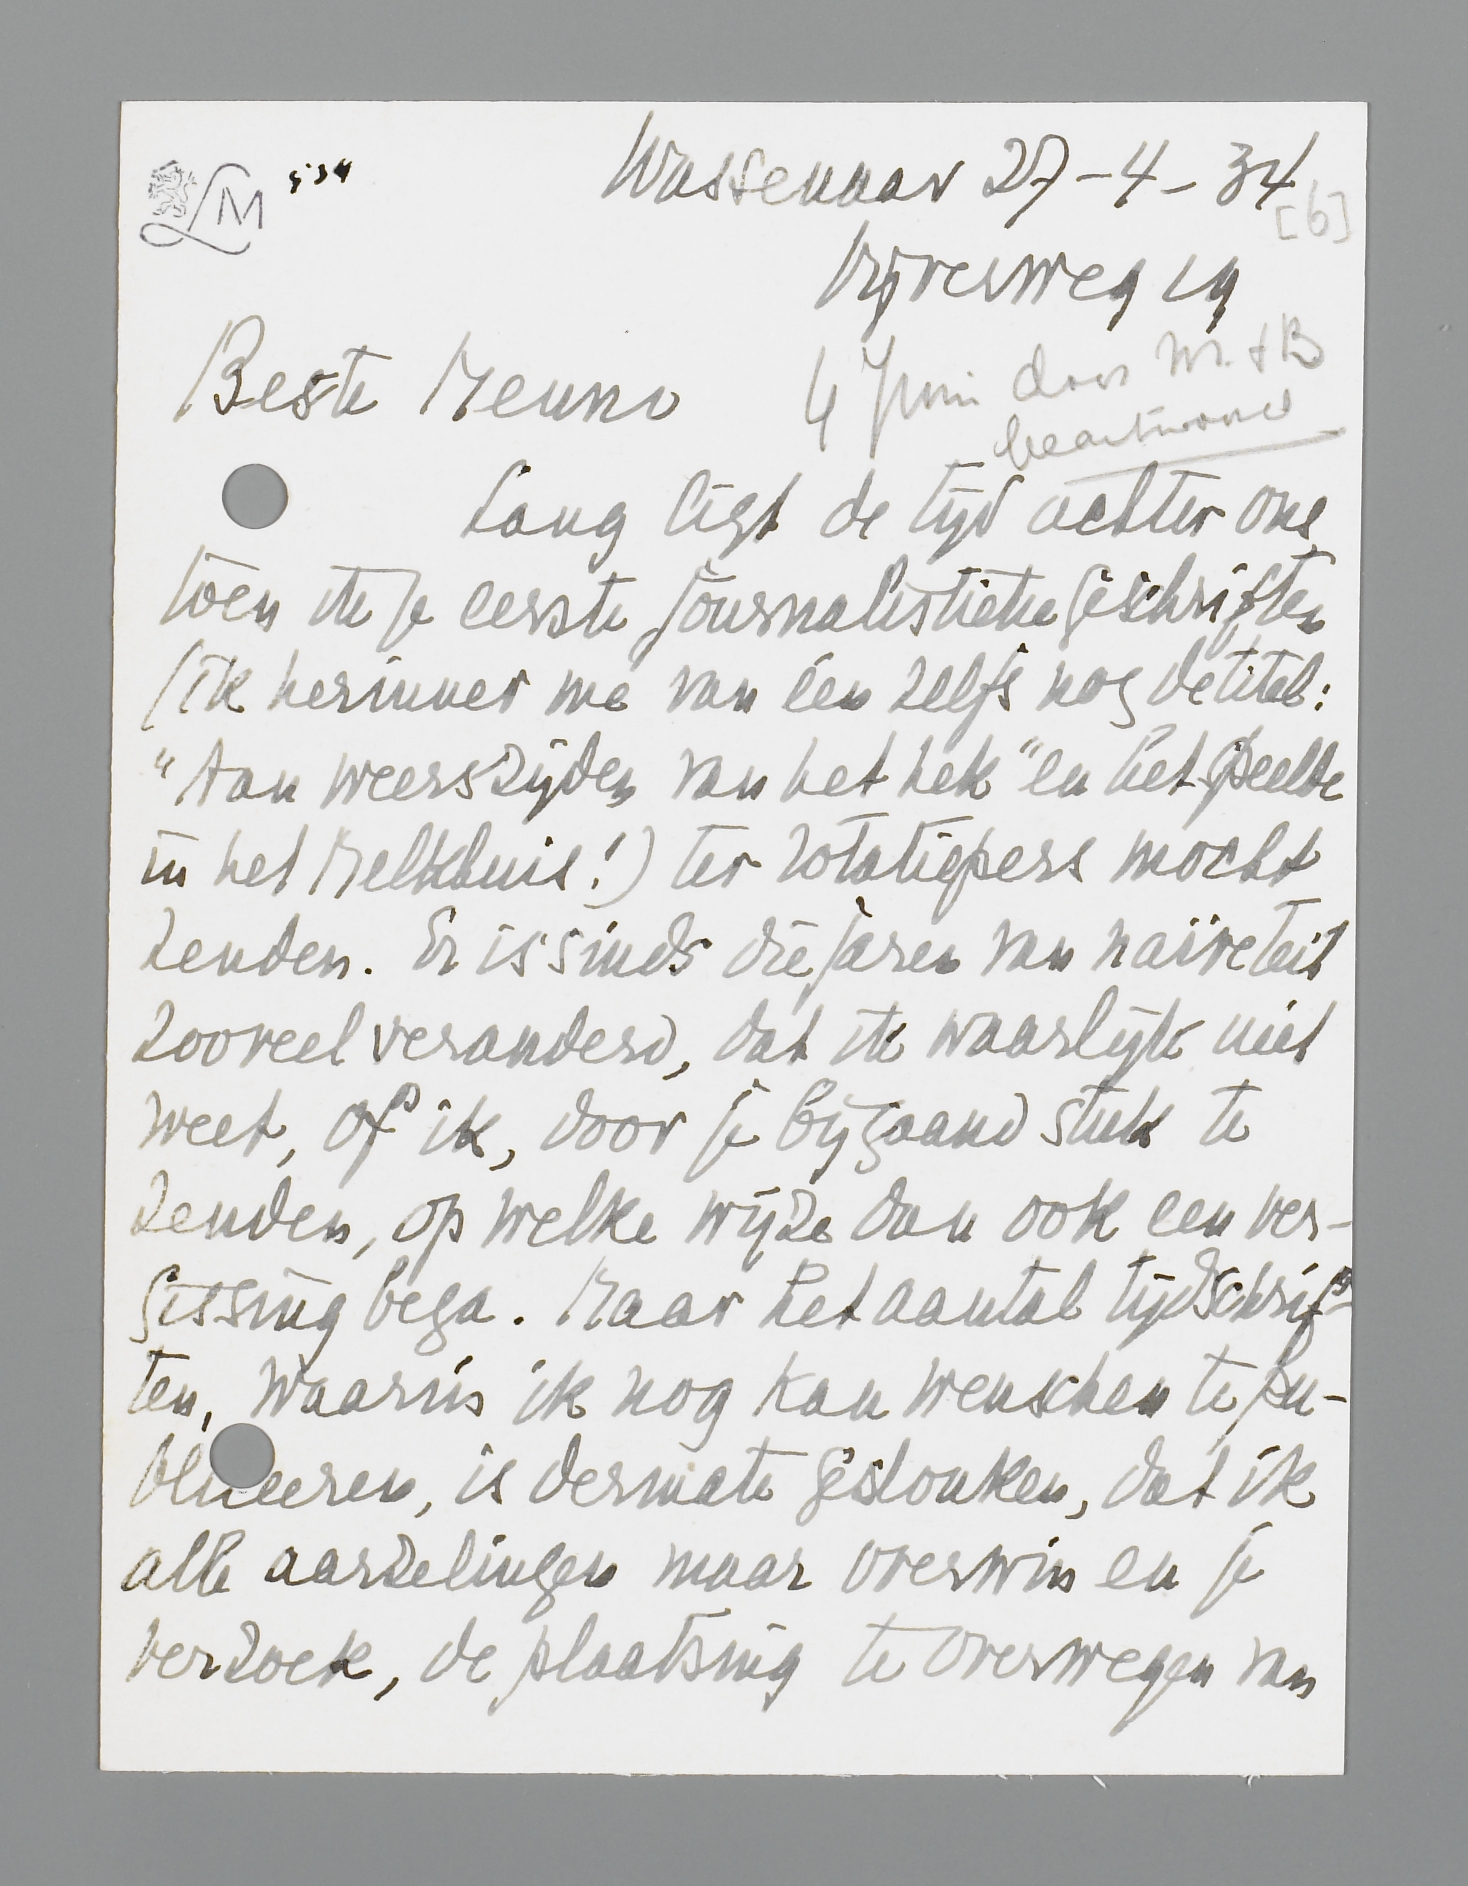 LM 534
Wassenaar 27-4-34
[6]
Vijverweg 19
Beste Menno
4 Juni door M. t B
beantwoord
Lang ligt de tijd achter ons,
toen ik je eerste journalistieke geschriften
(ik herinner me van één zelfs nog de titel:
"Aan weerszijden van het hek" en het speelde
in het Melkhuis!) ter rotatiepers mocht
zenden. Er is sinds die jaren van naïveteit
zooveel veranderd, dat ik waarlijk niet
weet, of ik, door je bijgaand stuk te
zenden, op welke wijze dan ook een ver-
gissing bega. Maar het aantal tijdschrif-
ten, waarin ik nog kan wenschen te pu-
bliceeren, is dermate geslonken, dat ik
alle aarzelingen maar overwin en je
verzoek, de plaatsing te overwegen van